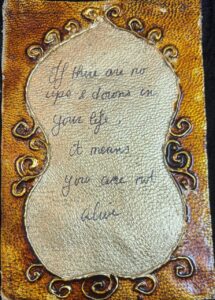 If there are no
ups & downs in
your life,
it means
you are not
alive